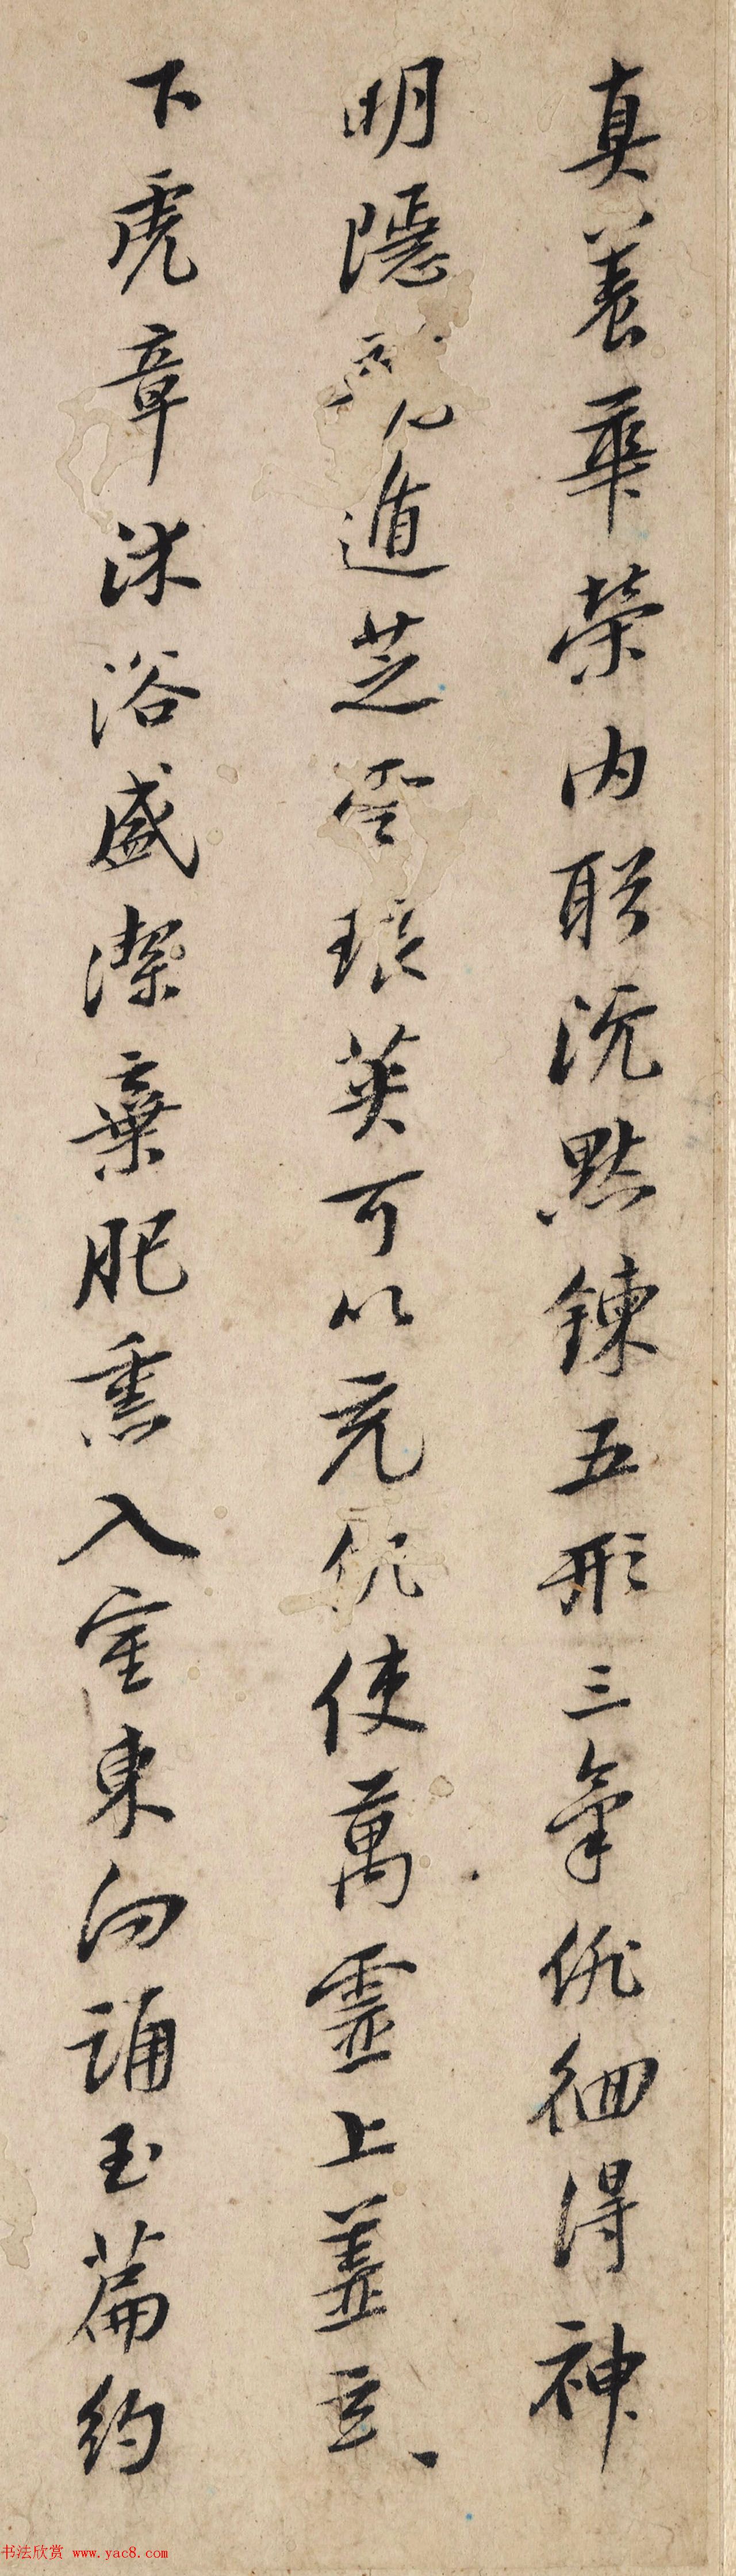 真養華榮內盼沉默鍊五形三氣徘徊得神
明隱龍遁芝雲琅英可以充飢使萬靈上蓋玄々
下虎章沐浴盛潔棄肥熏入室東向誦玉篇約
书法欣赏 www.yac8.com